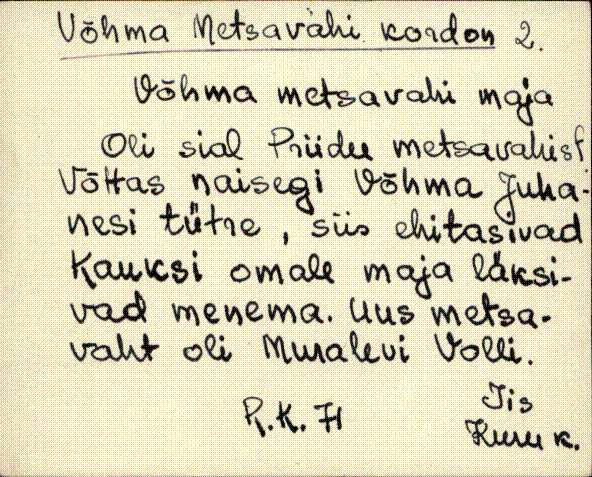 Võhma Metsavahi kordon 2.
Võhma metsavahi maja
Oli sial Priidu metsavahist
Võttas naisegi Võhma Juha-
nesi tütre, siis ehitasivad
Kauksi omale maja läksi-
vad menema. Uus metsa-
vaht oli Muralevi Volli.
R.K. 71
Iis
Kuru k.